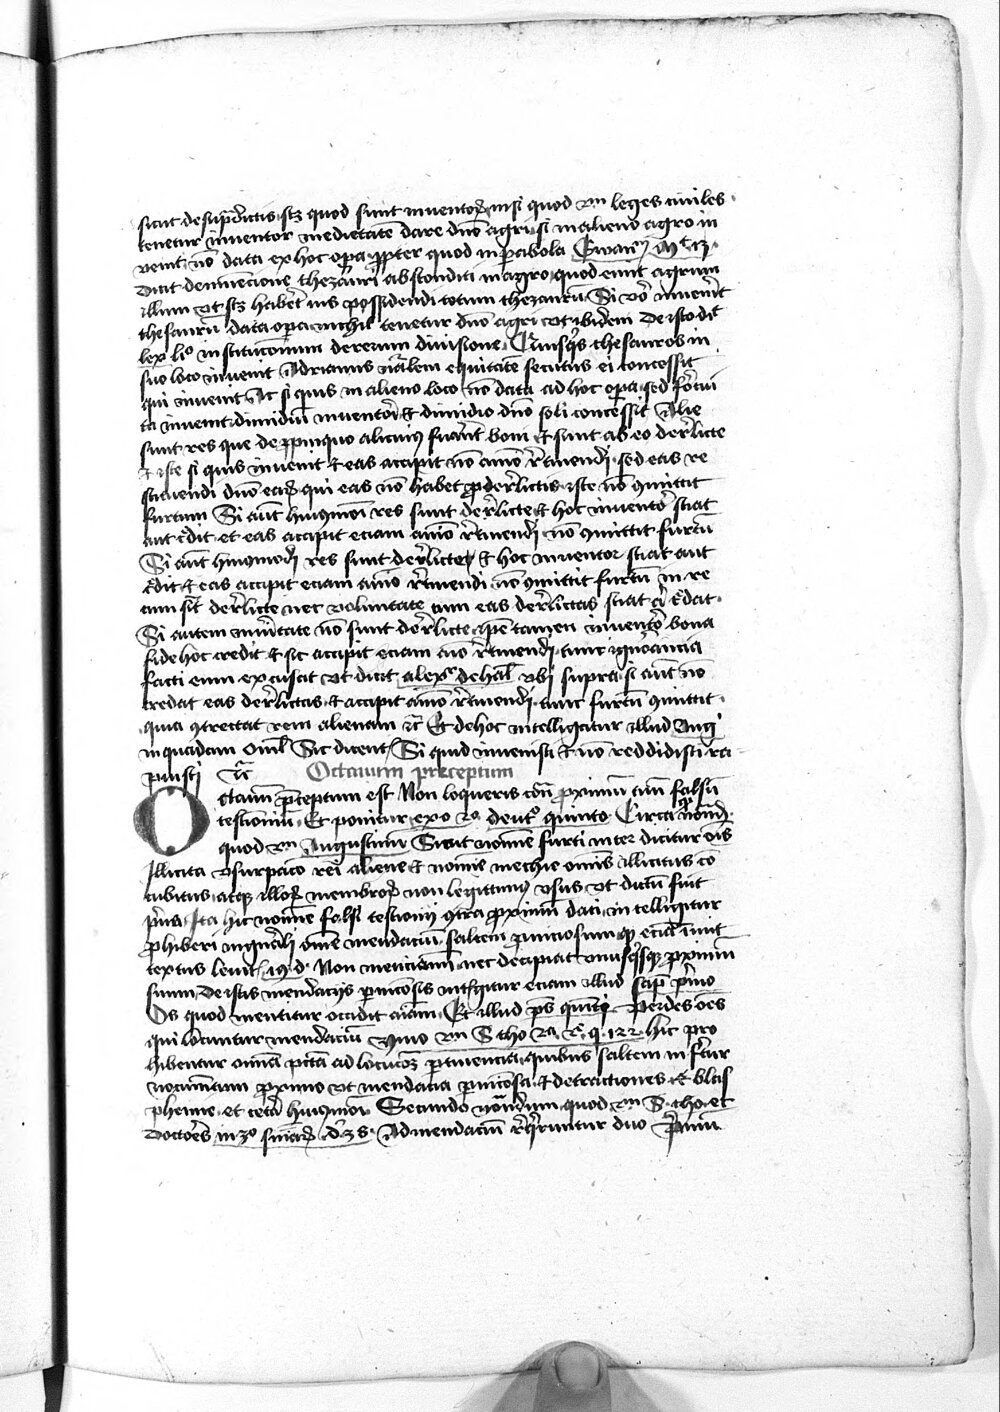 sicut de sup̄dictis, scz quod sunt inventoꝝ, nisi quod ẜm leges civiles
tenetur inventor medietatē dare dn̄o agri, si in alieno agro in
venit, nō data ex hoc opa, ꝓpter quod in parabola Ewan⁊ Mt 13
dicit de invencione thezauri absconditi in agro, quod emit agrum
illum ut scz haberet ius possidendi totum thezaurū. Si vō inveneīt
thesaurū data opa, nichil tenetur dn̄o agri, ut ibidem. De isto dīt
lex li⁰ institucionum de rerum divisione. Quisq̄s thesauros in
suo loco invenit Adrianus nālem equitatē secutus ei concessit
qui invenit. At si quis in alieno loco nō data ad hoc opa, sed fortui
ta invenit, dimidiū inventori et dimidiū dn̄o soli concessit. Alie
sunt res que de ꝓpinquo alicuiꝰ fuānt boni, et sunt ab eo derelicte
et iste si quis invenit et eas accipit nō aīo retinendi, sed eas re
stituendi dn̄o eaꝝ, qui eas nō habet pro derelictis, iste nō ꝯmittit
furtum. Si aūt huiꝰmōi res sunt derelicte, et hoc inventor sciat
aut credit, et eas accipit eciam aīo retinendi, nō ꝯmittit furtū
Si aūt huiꝰmodi res sunt derelicte, et hoc inventor sciat aut
credit, et eas accipit eciam aīo retinendi, nō ꝯmittit furtū, in re
cum sīt derelicte nec voluntate cum eas derelictas sciat ul credat.
Si autem in veritate nō sunt derelicte, ipse tamen inventor bona
fide hoc credit, et sic accipit eciam aīo retinendi, tunc ignorancia
facti eum excusat, ut dicit alexʳ de hal̄ ubi supra, si aūt nō
credat eas derelictas, et accipit aīo retinendi, tunc furtū ꝯmittit,
quia ꝯtrectat rem alienam ⁊c. Et de hoc intelligatur illud Augi
in quadam omīl. Sic dicent, Si quid invenisti et nō reddidisti ra
puisti ⁊c Octavum preceptum
Octavū p̄ceptum est Non loqueris ꝯtra proximū tuū falsū
testimoniū, Et ponitur exo 20 deut⁰ quinto. Circa qd̄ notandū
quod ẜm Augustinum Sicut nomine furti inter dicitur oīs
Illicita usurpacō rei aliene, et nomine mechie omīs illicitus cō
cubitus, atqꝫ illoꝝ membroꝝ non legittimꝰ usus, ut dictū fuit
prius, Ita hic nomine falsi testimonii ꝯtra proximū dati, intelligitur
prohiberi in generali omne mendaciū, saltem perniciosum, qꝫ eciā innuit
textus levit 19 d. Non menciamini, nec decipiat unusqisqꝫ proximū
suum, De istis mendaciis perniciosis intelligitur eciam illud Sapē primo
Os quod mentitur occidit aīam, Et illud ps quinti. Perdes oēs
qui locuntur mendaciū. Unio ẜm S tho 2a 2e q. 122. hic pro
hibentur omīa pctā ad locucōeꝫ pertinencia, quibus saltem infertur
nocumentum proximo, ut mendacia perniciosa, et detractiones, et blas
phemie, et cetera huiꝰmōi. Secundo notandum, quod ẜm S. tho, et
doctores in 3⁰ sententiaꝝ d. 38. Ad mendaciū requiruntur duo. Primū